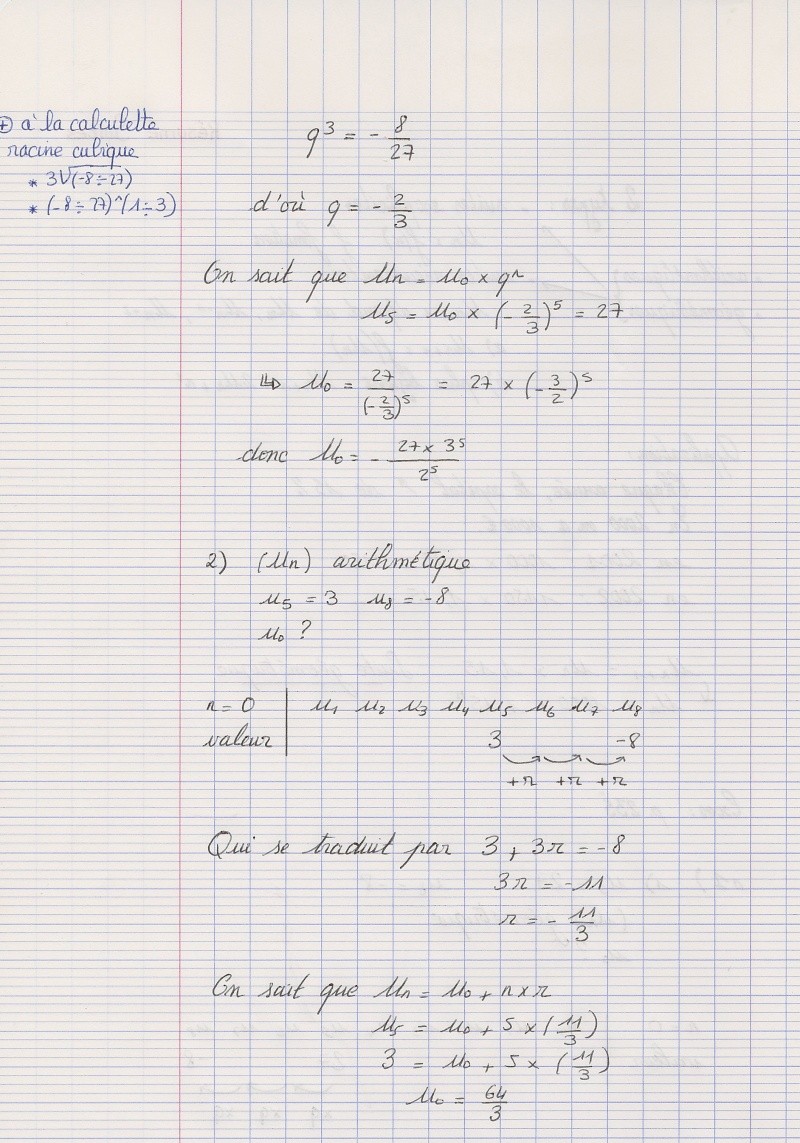 ⊕ à la calculette
racine cubique
* 3√(-8÷27)
* (-8÷27)^(1÷3)
q³ = - 8/27
d'où q = - 2/3
On sait que Un = U0 × qⁿ
U5 = U0 × (- 2/3)⁵ = 27
↳ U0 = 27/(-2/3)⁵ = 27 × (- 3/2)⁵
donc U0 = - 27 × 3⁵/2⁵
2) (Un) arithmétique
U5 = 3 U8 = -8
U0 ?
n = 0 | U1 U2 U3 U4 U5 U6 U7 U8
valeur | 3 -8
+r +r +r
Qui se traduit par 3 + 3r = -8
3r = -11
r = - 11/3
On sait que Un = U0 + n × r
U5 = U0 + 5 × (11/3)
3 = U0 + 5 × (11/3)
U0 = 64/3